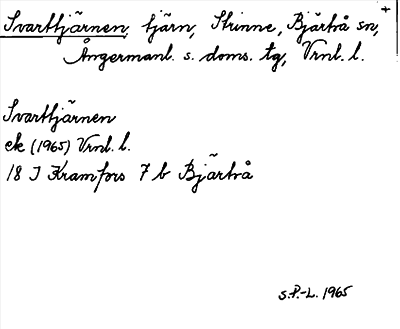 Svarttjärnen, tjärn, Strinne, Bjärtrå sn,
Ångermanl. s. doms. tg, Vrnl. l.
Svarttjärnen
ek (1965) Vrnl. l.
18 J Kramfors 7 b Bjärtrå
S.P.-L. 1965